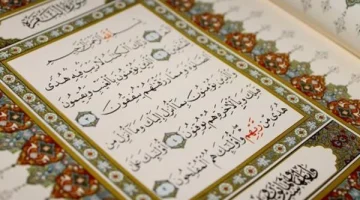 بِسْمِ اللَّهِ الرَّحْمَٰنِ الرَّحِيمِ
الم ذَٰلِكَ الْكِتَابُ لَا رَيْبَ فِيهِ هُدًى
لِلْمُتَّقِينَ الَّذِينَ يُؤْمِنُونَ بِالْغَيْبِ وَيُقِيمُونَ
الصَّلَاةَ وَمِمَّا رَزَقْنَاهُمْ يُنْفِقُونَ
وَالَّذِينَ يُؤْمِنُونَ بِمَا أُنْزِلَ إِلَيْكَ وَمَا أُنْزِلَ مِنْ
قَبْلِكَ وَبِالْآخِرَةِ هُمْ يُوقِنُونَ أُولَٰئِكَ عَلَىٰ
هُدًى مِنْ رَبِّهِمْ وَأُولَٰئِكَ هُمُ الْمُفْلِحُونَ